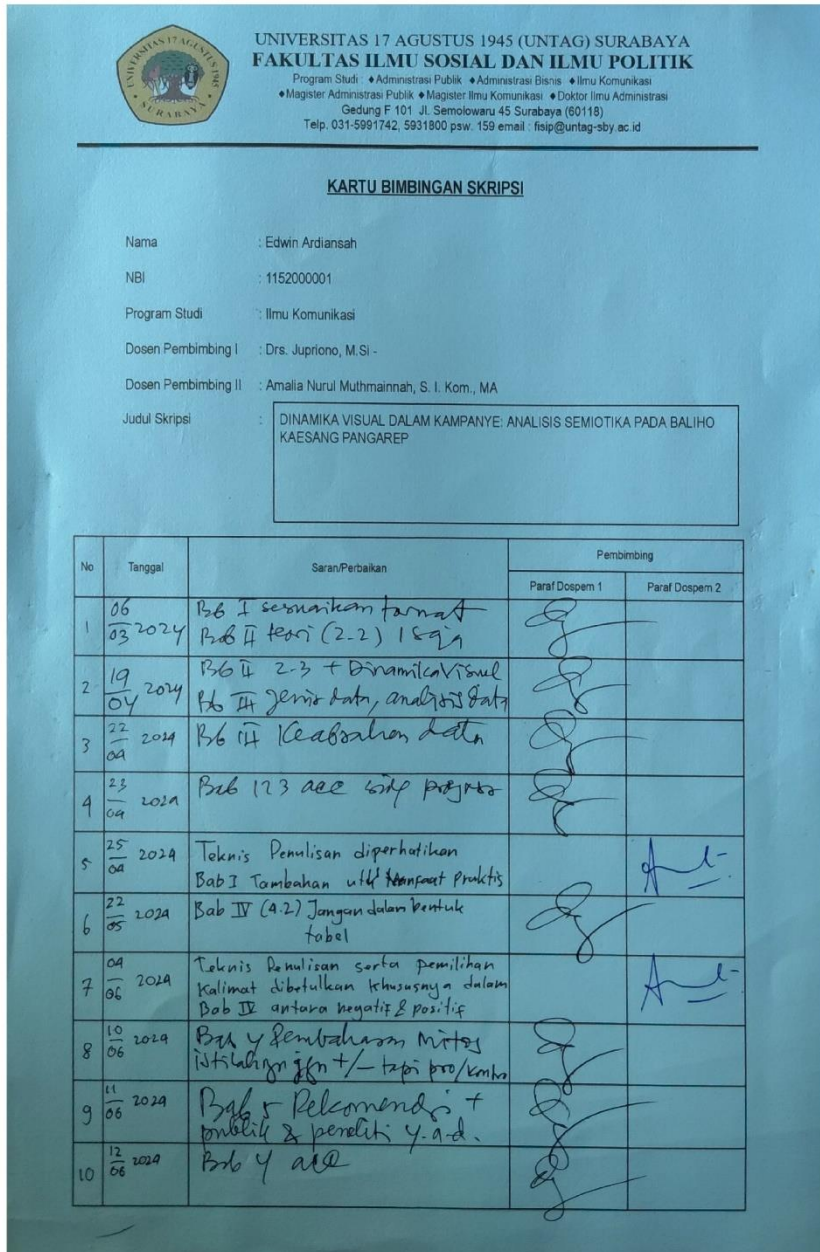 UNIVERSITAS 17 AGUSTUS 1945
SURABAYA
UNIVERSITAS 17 AGUSTUS 1945 (UNTAG) SURABAYA
FAKULTAS ILMU SOSIAL DAN ILMU POLITIK
Program Studi : ♦Administrasi Publik ♦Administrasi Bisnis ♦Ilmu Komunikasi
♦Magister Administrasi Publik ♦Magister Ilmu Komunikasi ♦Doktor Ilmu Administrasi
Gedung F 101 Jl. Semolowaru 45 Surabaya (60118)
Telp. 031-5991742, 5931800 psw. 159 email : fisip@untag-sby.ac.id
KARTU BIMBINGAN SKRIPSI
Nama : Edwin Ardiansah
NBI : 1152000001
Program Studi : Ilmu Komunikasi
Dosen Pembimbing I : Drs. Jupriono, M.Si -
Dosen Pembimbing II : Amalia Nurul Muthmainnah, S. I. Kom., MA
Judul Skripsi : DINAMIKA VISUAL DALAM KAMPANYE: ANALISIS SEMIOTIKA PADA BALIHO
KAESANG PANGAREP
No Tanggal Saran/Perbaikan Pembimbing
Paraf Dospem 1 Paraf Dospem 2
1 06/03 2024 Bab I sesuaikan format
Bab II teori (2-2) 1 saja
2 19/04 2024 Bab II 2-3 + Dinamika Visual
Bab III jenis data, analisis data
3 22/04 2024 Bab III Keabsahan data
4 23/04 2024 Bab 123 acc
5 25/04 2024 Teknis Penulisan diperhatikan
Bab I Tambahan utk Manfaat Praktis
6 22/05 2024 Bab IV (4.2) Jangan dalam bentuk
tabel
7 04/06 2024 Teknis Penulisan serta pemilihan
Kalimat dibetulkan khususnya dalam
Bab IV antara negatif & positif
8 10/06 2024 Bab 4 Pembahasan Mitos
istilahnya jgn +/- tapi pro/kontra
9 11/06 2024 Bab 5 Rekomendasi +
publik & peneliti y.a.d.
10 12/06 2024 Bab 4 acc